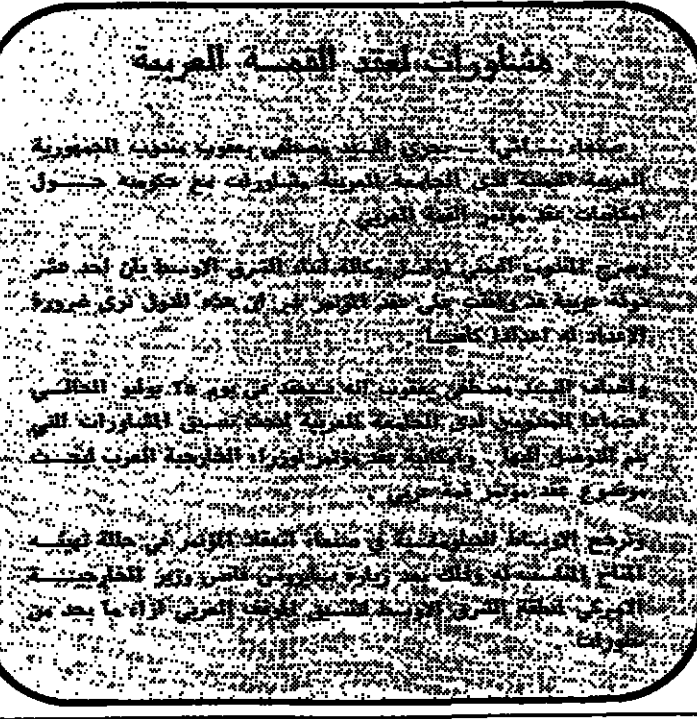 مشاورات لعقد القمة العربية
صنعاء ـ أ.ش.أ ـ يجري السيد مصطفى يعقوب مندوب الجمهورية
العربية اليمنية لدى الجامعة العربية مشاورات مع حكومته حول
امكانيات عقد مؤتمر القمة العربي
وصرح المندوب اليمني لوكالة أنباء الشرق الاوسط بأن احد عشر
دولة عربية قد وافقت على عقد المؤتمر غير أن هذه الدول ترى ضرورة
الاعداد له اعدادا كاملا
وأضاف السيد مصطفى يعقوب انه سيعقد في يوم ٢٥ يوليو الحالي
اجتماعا للمندوبين لدى الجامعة العربية لبحث تنسيق المشاورات التي
يتم التوصل اليها وامكانية عقد مؤتمر لوزراء الخارجية العرب لبحث
موضوع عقد مؤتمر قمة عربي .
وترجح الاوساط الدبلوماسية في صنعاء انعقاد المؤتمر في حالة تهيئة
المناخ المناسب له وذلك بعد زيارة سايروس فانس وزير الخارجية
الامريكي لمنطقة الشرق الاوسط لتنسيق الموقف العربي ازاء ما يجد من
تطورات .